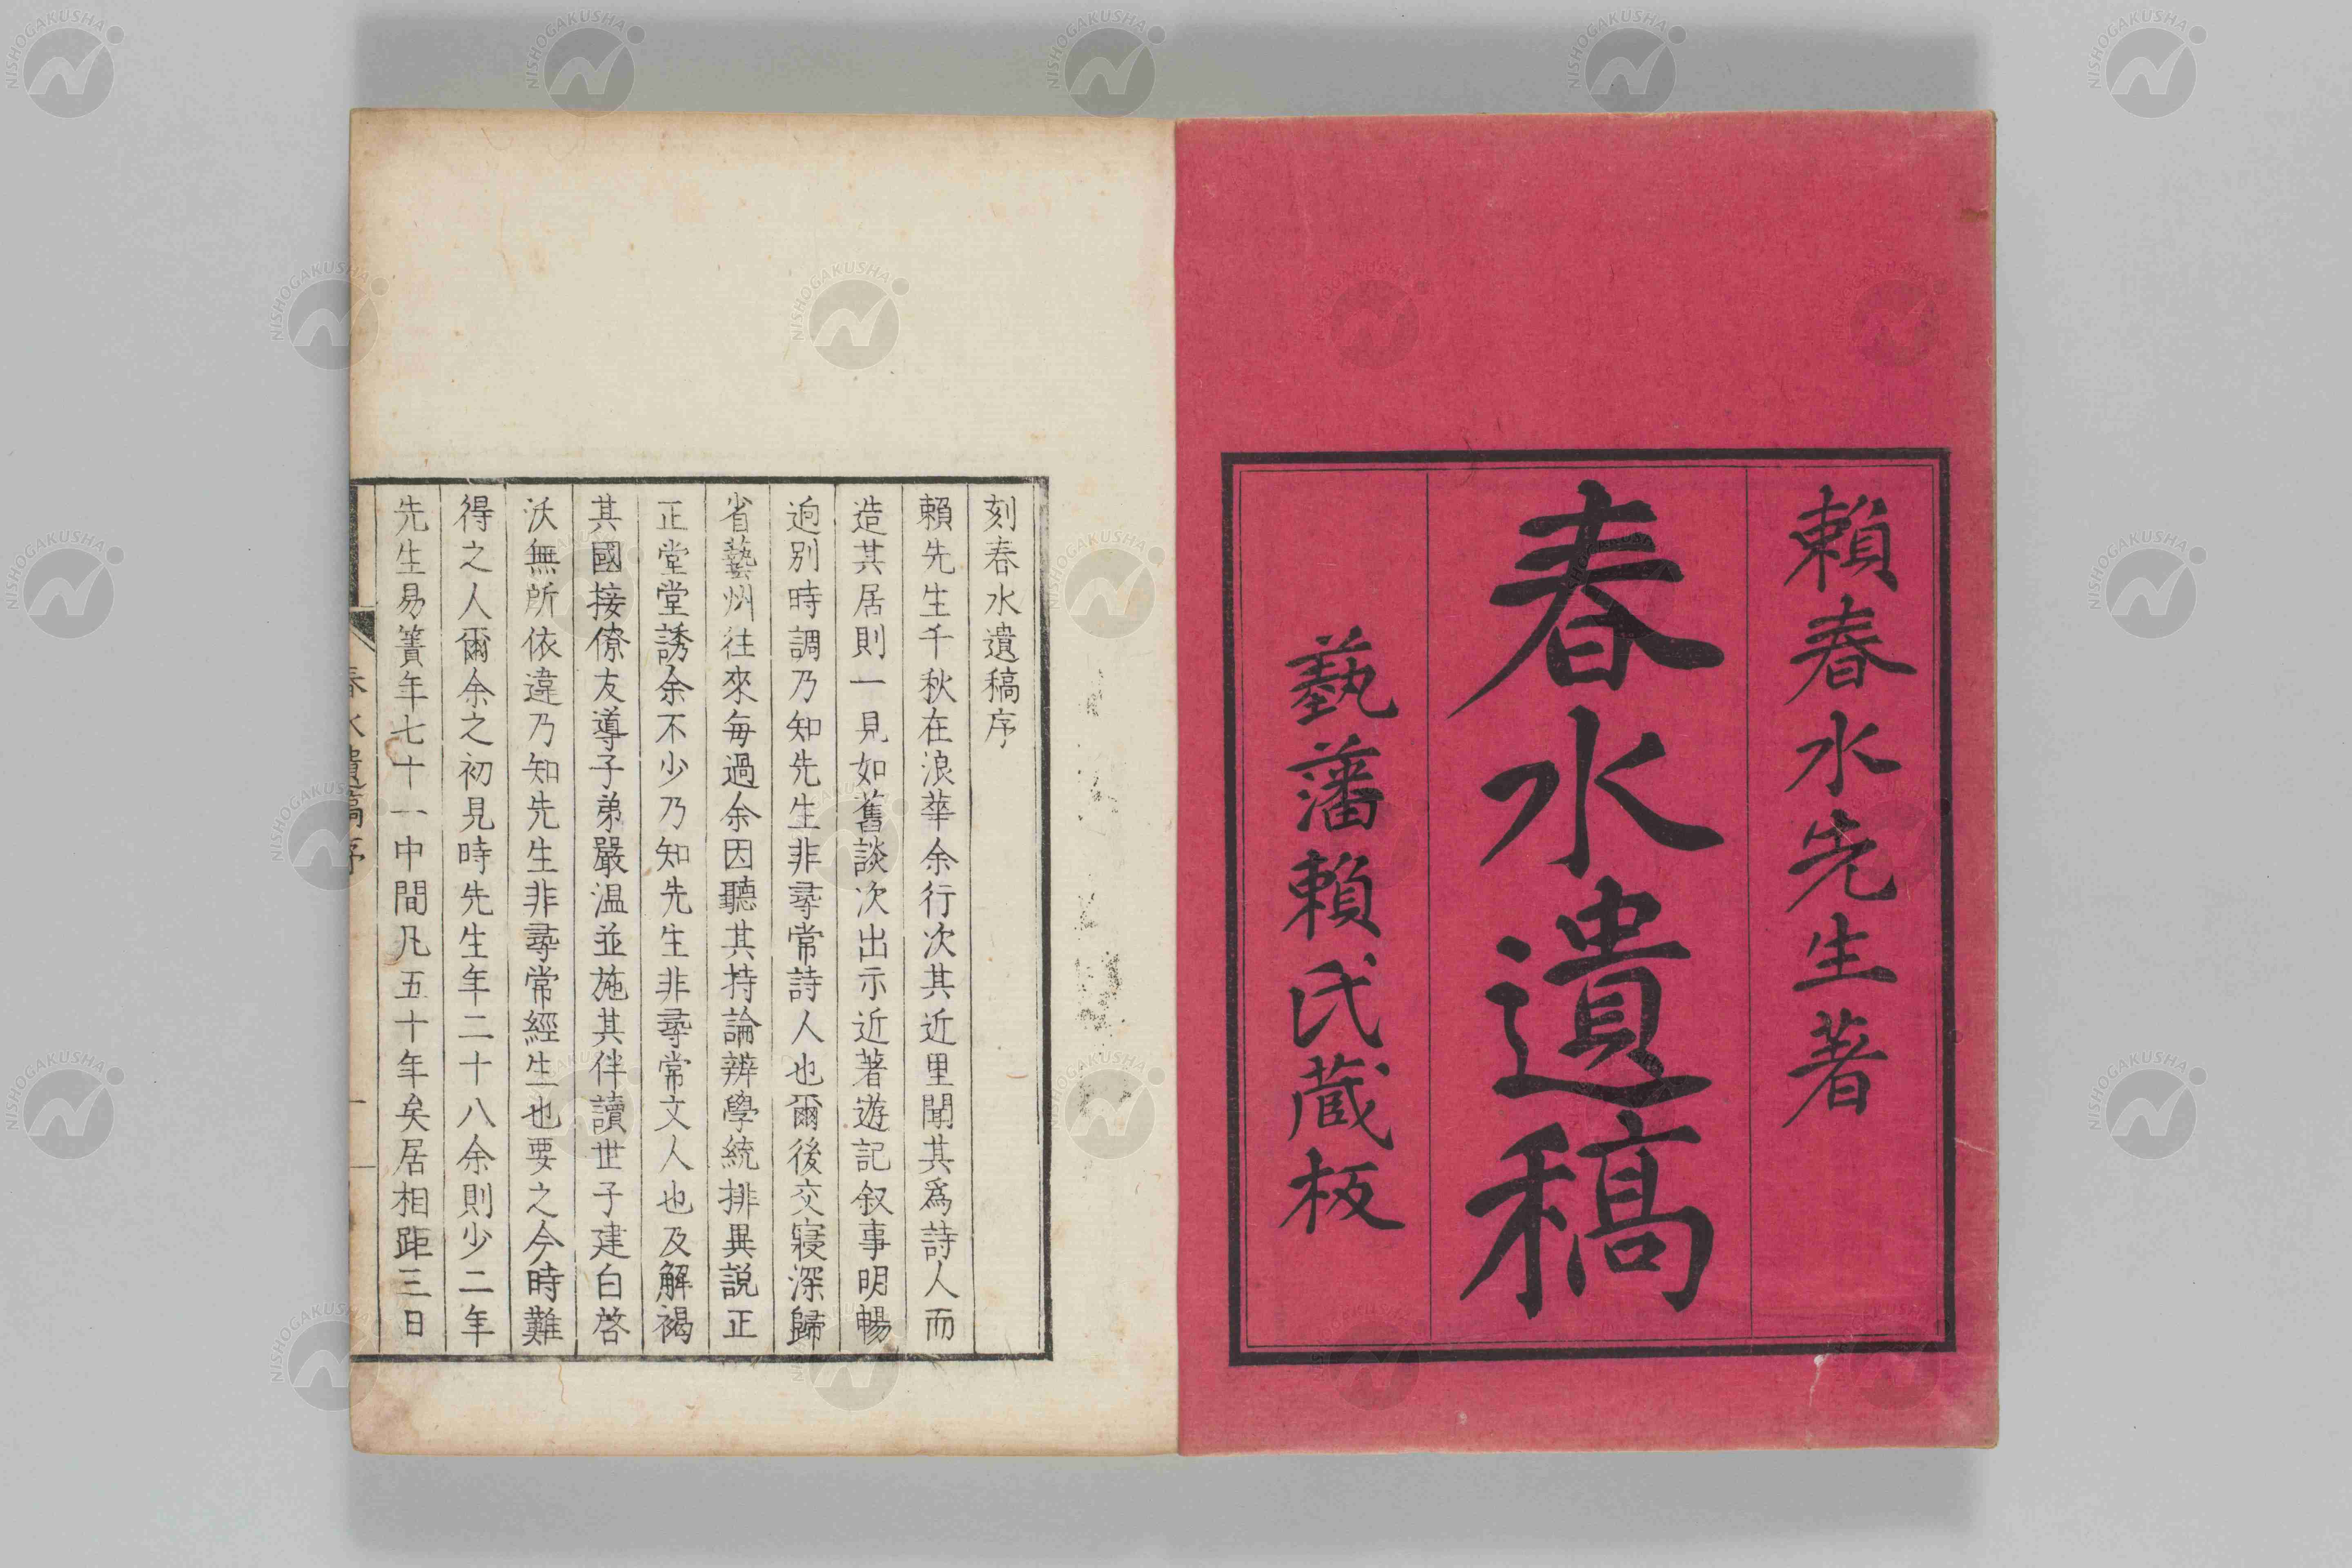 賴春水先生著
春水遺稿
藝藩賴氏蔵板
刻春水遺稿序
賴先生千秋在浪華余行次其近里聞其爲詩人而
造其居則一見如舊談次出示近著遊記叙事明暢
逈別時調乃知先生非尋常詩人也爾後交寢深歸
省藝州往來每過余因聽其持論辨學統排異說正
正堂堂誘余不少乃知先生非尋常文人也及解褐
其國接僚友導子弟嚴溫並施其伴讀世子建白啓
沃無所依違乃知先生非尋常經生也要之今時難
得之人爾余之初見時先生年二十八余則少二年
先生易簀年七十一中間凡五十年矣居相距三日
春水遺稿序
一
NISHOGAKUSHA